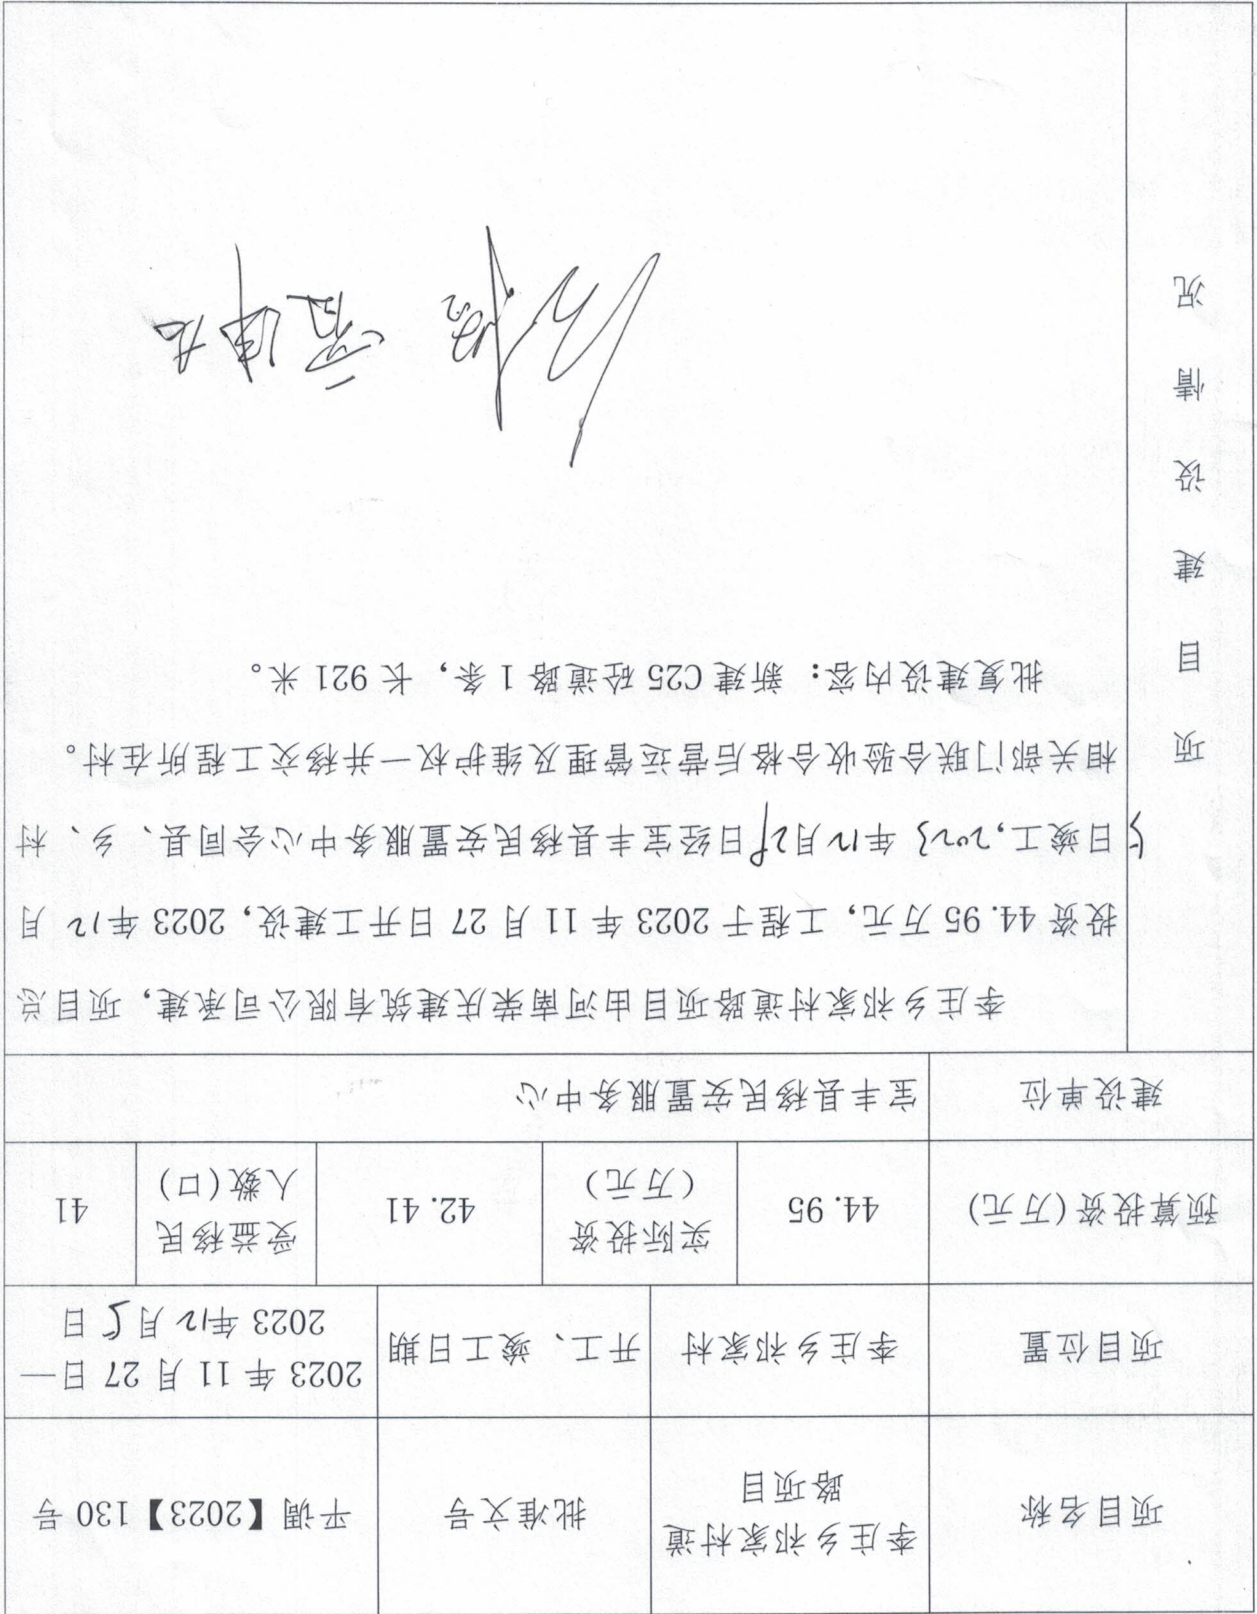 项目名称
李庄乡祁家村道
路项目
批准文号
平调【2023】130 号
项目位置
李庄乡祁家村
开工、竣工日期
2023 年 11 月 27 日—
2023 年12 月 5 日
预算投资(万元)
44.95
实际投资
(万元)
42.41
受益移民
人数(口)
41
建设单位
宝丰县移民安置服务中心
项目建设情况
李庄乡祁家村道路项目由河南荣庆建筑有限公司承建，项目总
投资 44.95 万元，工程于 2023 年 11 月 27 日开工建设，2023 年12 月
5 日竣工，2023 年12月28日经宝丰县移民安置服务中心会同县、乡、村
相关部门联合验收合格后营运管理及维护权一并移交工程所在村。
批复建设内容：新建 C25 砼道路 1 条，长 921 米。